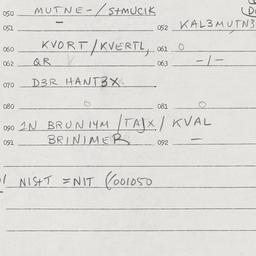 050 MUTNE-/S+MUCIK
051 - 052 KAL3MUTN3
060 KVORT/KVERTL, 061 0
062 QR 063 -/-
070 D3R HANT3X
080 0 081 0
090 IN BRUNIYM/TAJX/KVAL
091 BRINIMER 092 -
NIS+T =NIT (/001050